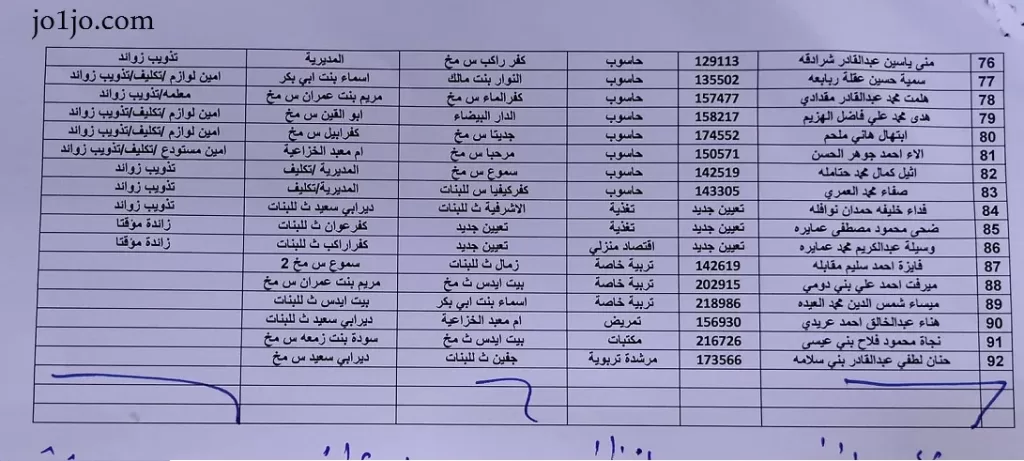 jo1jo.com
76 منى ياسين عبدالقادر شرادقه 129113 حاسوب كفر راكب س مخ المديرية تذويب زوائد
77 سمية حسين عقلة ربابعه 135502 حاسوب النوار بنت مالك اسماء بنت ابي بكر امين لوازم /تكليف/تذويب زوائد
78 هلمت محمد عبدالقادر مقدادي 157477 حاسوب كفرالماء س مخ مريم بنت عمران س مخ معلمه/تذويب زوائد
79 هدى محمد علي فاضل الهزيم 158217 حاسوب الدار البيضاء ابو القين س مخ امين لوازم /تكليف/تذويب زوائد
80 ابتهال هاني ملحم 174552 حاسوب جديتا س مخ كفرابيل س مخ امين لوازم /تكليف/تذويب زوائد
81 الاء احمد جوهر الحسن 150571 حاسوب مرحبا س مخ ام معبد الخزاعية امين مستودع /تكليف/تذويب زوائد
82 اثيل كمال محمد حتامله 142519 حاسوب سموع س مخ المديرية /تكليف تذويب زوائد
83 صفاء محمد العمري 143305 حاسوب كفركيفيا س للبنات المديرية/تكليف تذويب زوائد
84 فداء خليفه حمدان نوافله تعيين جديد تغذية الاشرفية ث للبنات ديرابي سعيد ث للبنات تذويب زوائد
85 ضحى محمود مصطفى عمايره تعيين جديد تغذية تعيين جديد كفرعوان ث للبنات زائدة مؤقتا
86 وسيلة عبدالكريم محمد عمايره تعيين جديد اقتصاد منزلي تعيين جديد كفراراكب ث للبنات زائدة مؤقتا
87 فايزة احمد سليم مقابله 142619 تربية خاصة زمال ث للبنات سموع س مخ 2
88 ميرفت احمد علي بني دومي 202915 تربية خاصة بيت ايدس ث مخ مريم بنت عمران س مخ
89 ميساء شمس الدين محمد العيده 218986 تربية خاصة اسماء بنت ابي بكر بيت ايدس ث للبنات
90 هناء عبدالخالق احمد عريدي 156930 تمريض ام معبد الخزاعية ديرابي سعيد ث للبنات
91 نجاة محمود فلاح بني عيسى 216726 مكتبات بيت ايدس ث مخ سودة بنت زمعه س مخ
92 حنان لطفي عبدالقادر بني سلامه 173566 مرشدة تربوية جفين ث للبنات ديرابي سعيد س مخ